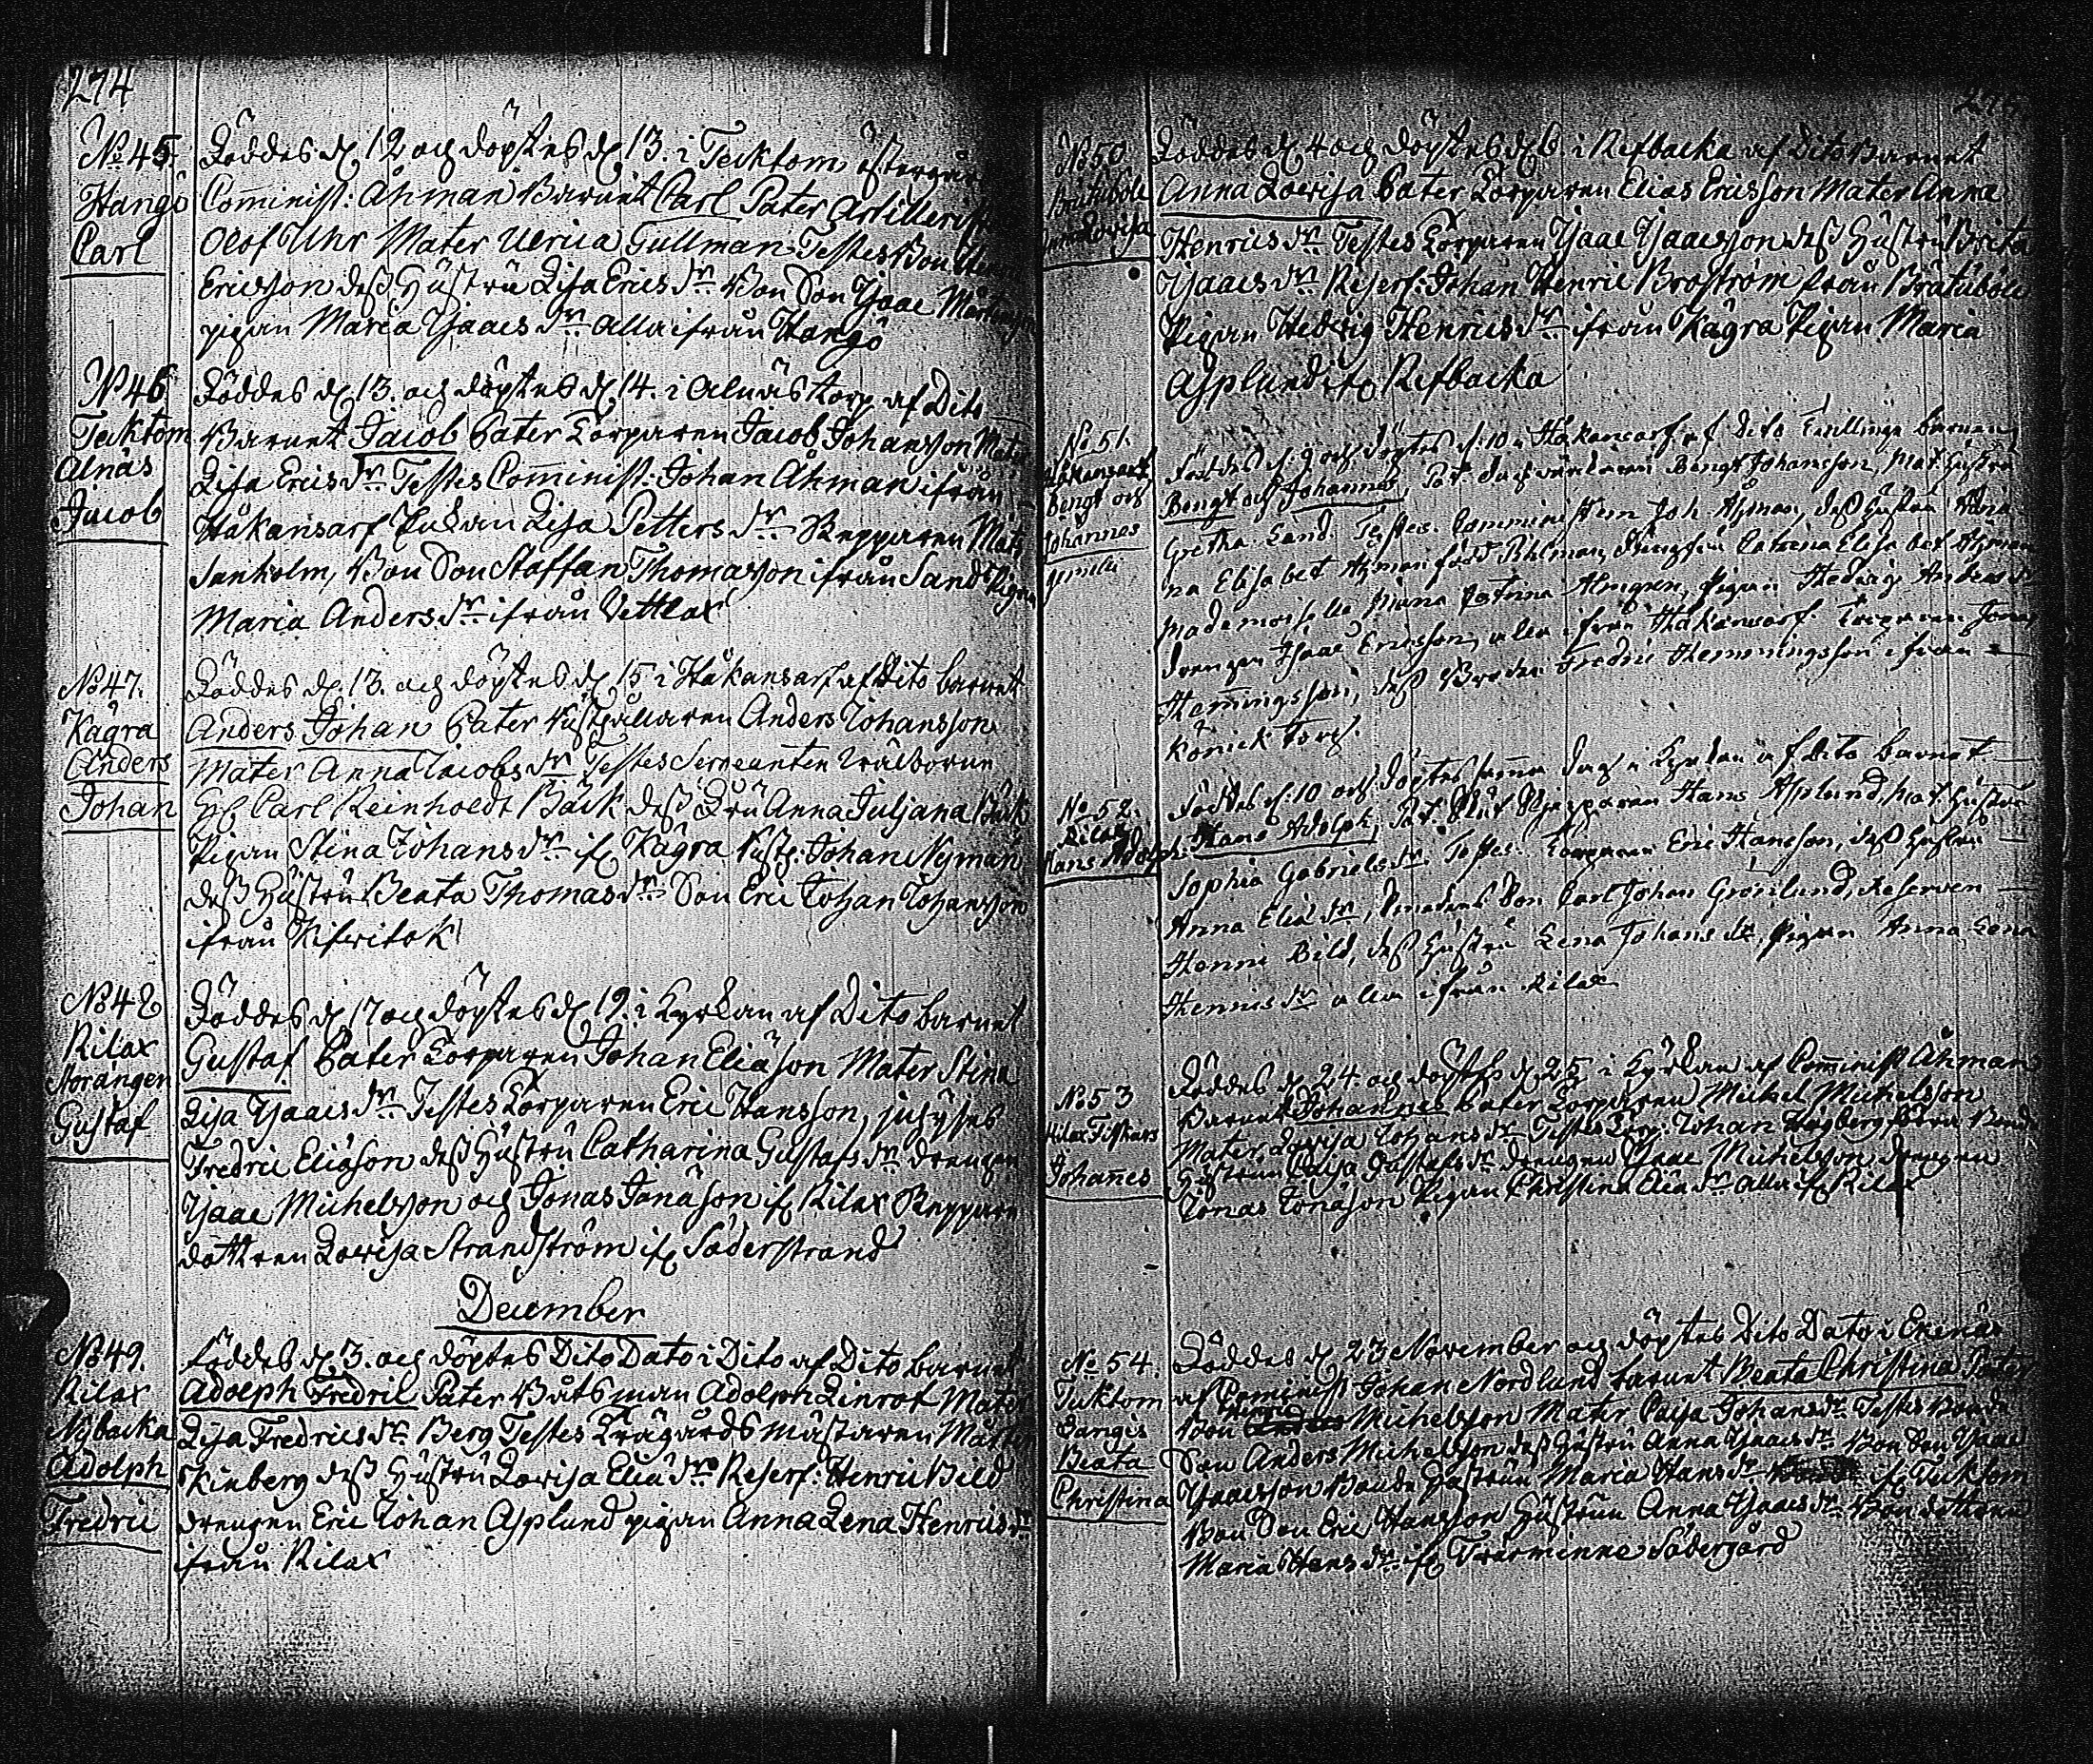 274
No 45.
Hangö
Carl
Föddes d. 12 och döptes d. 13. i Tecktom af
Comminist: Åhman Barnet Carl Pater Artilleri
Olof Uhr Mater Ulrica Tullman Testes Bon
Ericsson dess Hustru Lisa Erics dr Bon Son Isaac
pigan Maria Isaacs dr alla ifrån Hangö
No 46
Tecktom
Alnäs
Jacob
Föddes d. 13. och döptes d. 14. i Alnäs torp af Dito
Barnet Jacob Pater Torparen Jacob Johansson Mater
Lisa Erics dr Testes Comminist: Johan Åhman ifrån
Håkansarf Lisa Petters dr Mats
Sanholm, Bon Son Staffan Thomasson ifrån Sand Pigan
Maria Anders dr ifrån Vettlax
No 47.
Kågra
Anders
Johan
Föddes d. 13. och döptes d. 15 i Håkansarf af Dito barnet
Anders Johan Pater Anders Johansson
Mater Anna Jacobs dr Testes Sergeanten
H. Carl Reinholdt Bäck dess Fru Anna Juljana Bäck
Pigan Stina Johans dr if. Kågra Johan Nyman
dess Hustru Beata Thomas dr Son Eric Johan Johansson
ifrån
No 48
Rilax
Norängen
Gustaf
Föddes d. 17 och döptes d. 19. i Kyrkan af Dito barnet
Gustaf Pater Torparen Johan Eliäson Mater Stina
Lisa Isaacs dr Testes Torparen Eric Hansson,
Fredric Eliäson dess Hustru Catharina Gustafs dr drengen
Isaac Michelsson och Jonas Jonäson if. Rilax
dottren Lovisa Strandström if. Söderstrand
December
No 49.
Rilax
Nybacka
Adolph
Fredric
Föddes d. 3. och döptes Dito Dato i Dito af Dito barnet
Adolph Fredric Pater Båtsman Adolph Linrot Mater
Lisa Fredrics dr Berg Testes Trägårds mästaren
Kinberg dess Hustru Lovisa Eliä dr Reserf: Henric Bild
drengen Eric Johan Asplund pigan Anna Lena Henrics dr
ifrån Rilax
No 50
Anna Lovisa
Föddes d. 4 och döptes d. 6 i Refbacka af Dito Barnet
Anna Lovisa Pater Torparen Elias Ericsson Mater Anna
Henrics dr Testes Torparen Isaac Isaacsson dess Hustru Brita
Isaacs dr Reserf: Johan Henric Broström ifrån Bråtuböle
Pigan Hedvig Henrics dr ifrån Kågra Pigan Maria
Asplund if. Refbacka
No 51.
Håkansarf
Bengt och
Johannes
gemelli
Föddes d. 9 och döptes d. 10 i Håkansarf af Dito Tvillinge barnen
Bengt och Johannes, Pat. Bengt Johansson, Mat. Hustru
Gretha Lund. Testes. Comministern Joh Åhman, dess Hustru
na Elisabet Åhman född Pihlman, Catrina Elisabet Åhman
Mademoiselle Maria Catrina Almgren, Pigan Hedvig Anders dr
drengen Isaac Ericsson, alla ifrån Håkansarf. Torparen Jonas
Hemmingsson, dess Broder Fredric Hemmingsson ifrån
torp.
No 52.
Rilax
Hans Adolph
Föddes d. 10 och döptes samma dag i Kyrkan af Dito barnet
Hans Adolph, Pat. Hans Asplund, Mat. Hustru
Sophia Gabriels dr. Testes. Torparen Eric Hansson, dess Hustru
Anna Eliä dr, Son Carl Johan Grönlund, Reserven
Henric Bild, dess Hustru Lena Johans dr, Pigan Anna Lena
Henrics dr alla ifrån Rilax
No 53
Rilax Fiskars
Johannes
Föddes d. 24 och döptes d. 25 i Kyrkan af Comminist Åhman
Barnet Johannes Pater Torparen Michel Michelsson
Mater Lovisa Johans dr Testes Torp: Johan Högberg
Hustrun Caisa Gustafs dr drengen Isaac Michelsson drengen
Jonas Jonäson Pigan Christina Eliä dr alla if. Rilax
No 54.
Tecktom
Beata
Christina
Föddes d. 23 November och döptes Dito Dato i Ekenäs
af Cominist Johan Nordlund barnet Beata Christina Pater
Bon Henric Michelsson Mater Caisa Johans dr Testes Bonde
Son Anders Michelsson dess Hustru Anna Isaacs dr Bon Son Isaac
Isaacsson Bonde Hustrun Maria Hans dr if. Tecktom
Bon Son Eric Hansson Hustrun Anna Isaacs dr Bon dottren
Maria Hans dr if. Tvärminne Södergård